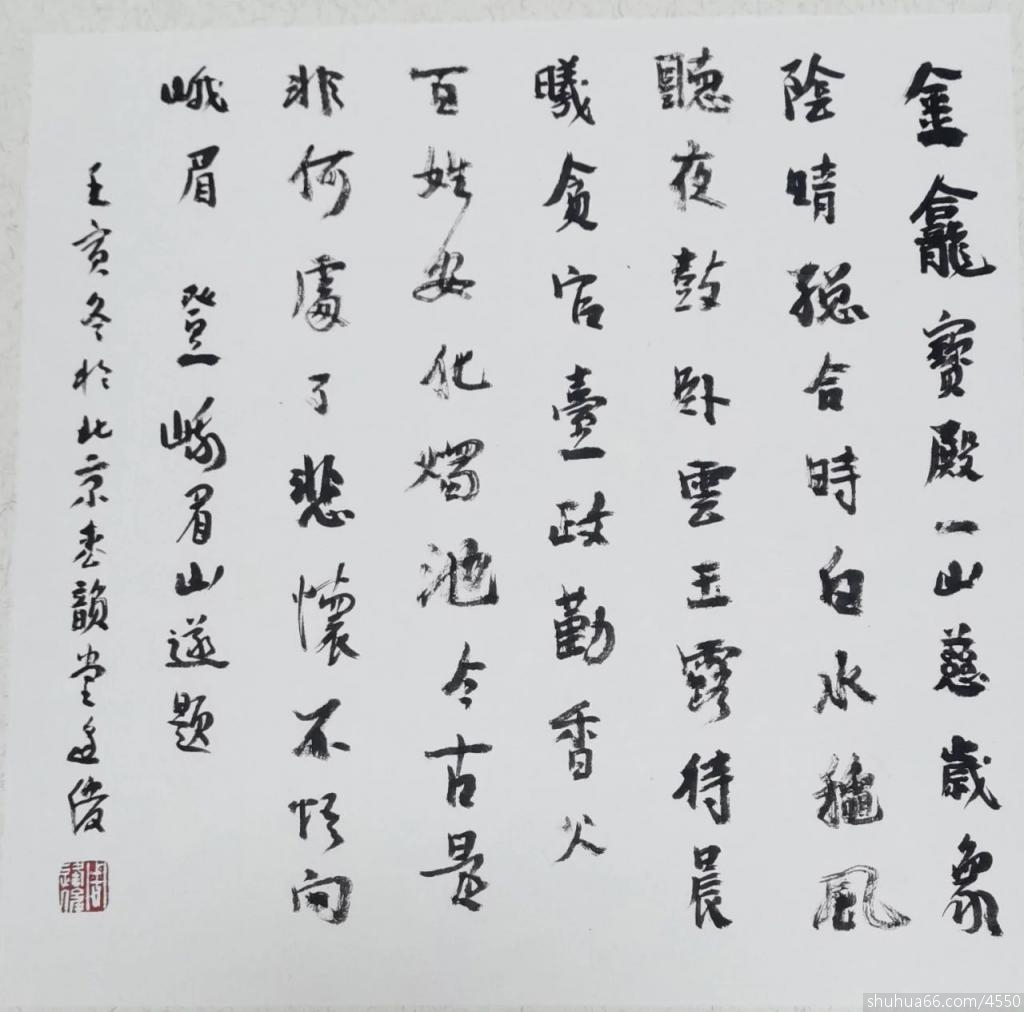 金龕寶殿一山慈歲象
陰晴聡合時白水穐風
聽夜鼓卧雲玉露待晨
曦貪官臺政勤香火
百姓安化燭池今古是
非何處了悲懷不悟向
峨眉 登峨眉山遂题
壬寅冬於北京春韻堂逢俊
shuhua66.com/4550